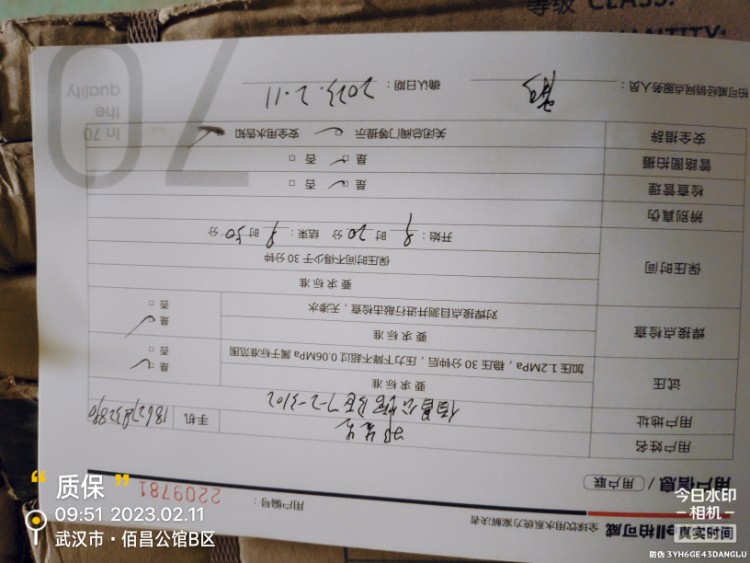 等级 CLASS:
QUANTITY:
ell柏可威 全球饮用水系统方案解决者
用户编号：
2209781
用户信息 / 用户联
用户姓名
用户地址
佰昌公馆B区7-2-3102
手机
试压
要求标准
加压1.2MPa，稳压30分钟后，压力下降不超过0.06MPa属于标准范围
是
否
焊接点检查
要求标准
对焊接点目测并进行敲击检查，无渗水
是
否
保压时间
要求标准
保压时间不得少于30分钟
开始：9时20分 结束：9时50分
辨别真伪
检查管理
是 否
管路图拍摄
是 否
安全措辞
关闭总阀门等提示 安全用水告知
柏可威经销网点服务人员：
确认日期：2023.2.11
70
In 70
the
quality
“质保”
09:51 2023.02.11
武汉市·佰昌公馆B区
今日水印
相机
真实时间
防伪 3YH6GE43DANGLU